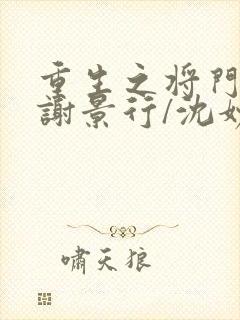 重生之将門
謝景行/沈
嘯天狼